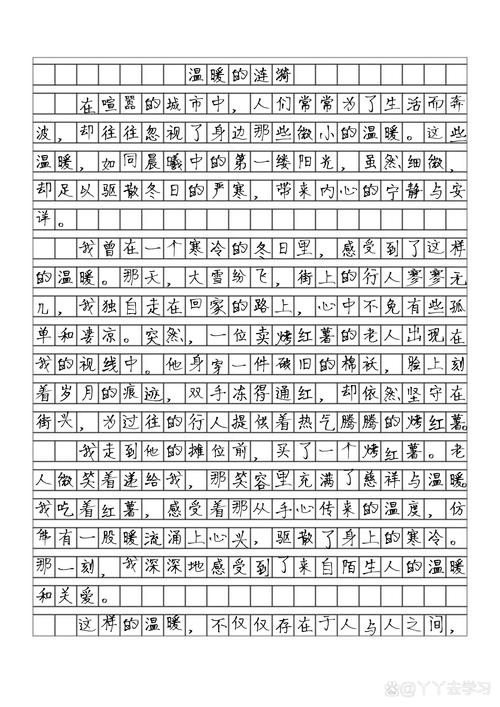 温暖的涟漪
在喧嚣的城市中，人们常常为了生活而奔
波，却往往忽视了身边那些微小的温暖。这些
温暖，如同晨曦中的第一缕阳光，虽然细微，
却足以驱散冬日的严寒，带来内心的宁静与安
详。
我曾在一个寒冷的冬日里，感受到了这样
的温暖。那天，大雪纷飞，街上的行人寥寥无
几，我独自走在回家的路上，心中不免有些孤
单和凄凉。突然，一位卖烤红薯的老人出现在
我的视线中。他身穿一件破旧的棉袄，脸上刻
着岁月的痕迹，双手冻得通红，却依然坚守在
街头，为过往的行人提供着热气腾腾的烤红薯。
我走到他的摊位前，买了一个烤红薯。老
人微笑着递给我，那笑容里充满了慈祥与温暖。
我吃着红薯，感受着那从手心传来的温度，仿
佛有一股暖流涌上心头，驱散了身上的寒冷。
那一刻，我深深地感受到了来自陌生人的温暖
和关爱。
这样的温暖，不仅仅存在于人与人之间，
知@丫丫去学习